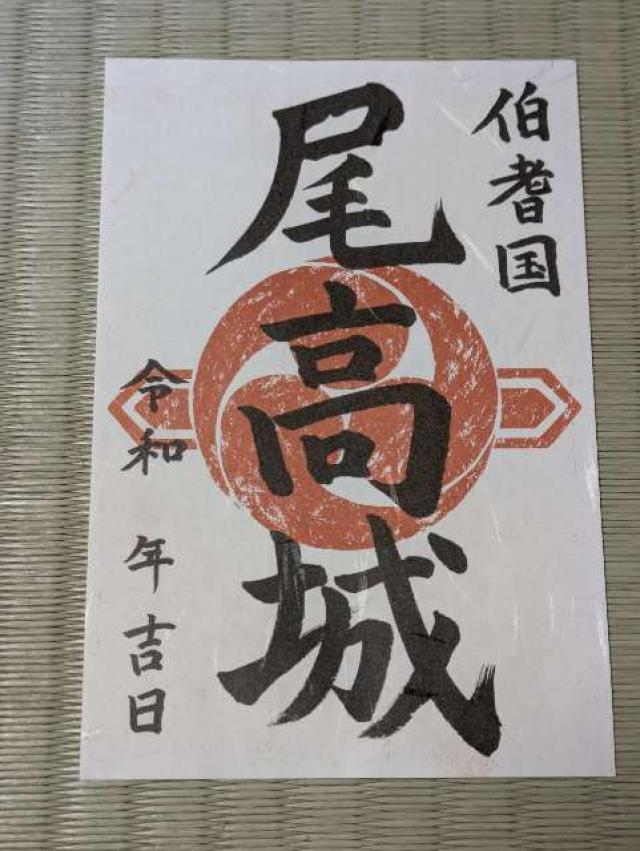 伯耆国
尾高城
令和 年吉日